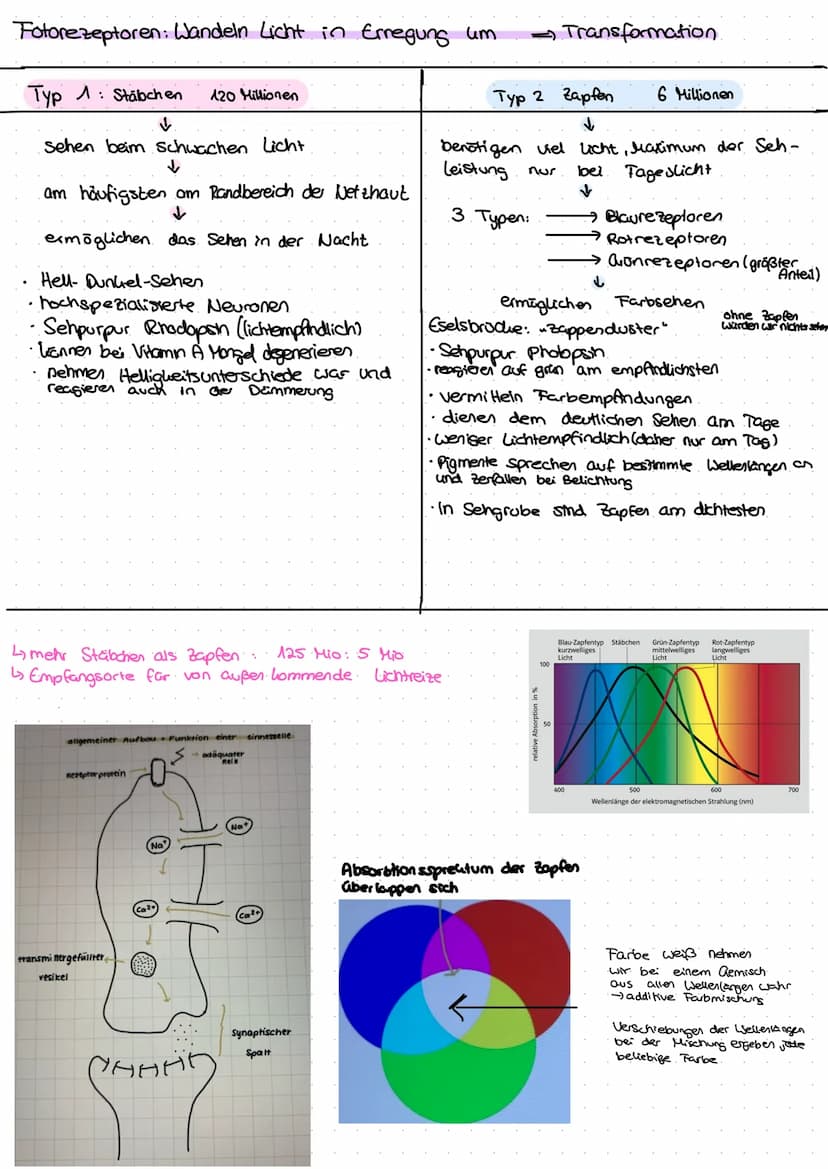 Fotorezeptoren: Wandeln Licht in Erregung um ⇒ Transformation
Typ 1: Stäbchen 120 Millionen
↓
sehen beim schwachen Licht
↓
am häufigsten am Randbereich der Netzhaut
↓
ermöglichen das Sehen in der Nacht
• Hell-Dunkel-Sehen
• hochspezialisierte Neuronen
• Sehpurpur Rhodopsin (lichtempfindlich)
• können bei Vitamin A Mangel degenerieren
• nehmen Helligkeitsunterschiede war und
reagieren auch in der Dämmerung
Typ 2 Zapfen 6 Millionen
↓
benötigen viel Licht, Maximum der Seh-
leistung nur bei Tageslicht
↓
3 Typen: → Blaurezeptoren
→ Rotrezeptoren
→ Grünrezeptoren (größter
Anteil)
↓
ermöglichen Farbsehen
Eselsbrücke: "Zappenduster"
ohne Zapfen
würden wir nichts sehen
• Sehpurpur Photopsin
• reagieren auf grün am empfindlichsten
• vermitteln Farbempfindungen
• dienen dem deutlichen Sehen am Tage
• weniger Lichtempfindlich (daher nur am Tag)
• Pigmente sprechen auf bestimmte Wellenlängen an
und zerfallen bei Belichtung
• In Sehgrube sind Zapfen am dichtesten
↳ mehr Stäbchen als Zapfen : 125 Mio : 5 Mio
↳ Empfangsorte für von außen kommende Lichtreize
Blau-Zapfentyp Stäbchen Grün-Zapfentyp Rot-Zapfentyp
kurzwelliges mittelwelliges langwelliges
Licht Licht Licht
100
50
relative Absorption in %
400 500 600 700
Wellenlänge der elektromagnetischen Strahlung (nm)
allgemeiner Aufbau + Funktion einer Sinneszelle
adäquater
Reiz
Rezeptorprotein
Na⁺
Na⁺
Ca²⁺
Ca²⁺
transmittergefüllter
vesikel
synaptischer
Spalt
Absorbtionssprektum der Zapfen
überlappen sich
Farbe weiß nehmen
wir bei einem Gemisch
aus allen Wellenlängen wahr
→ additive Farbmischung
Verschiebungen der Wellenlängen
bei der Mischung ergeben jede
beliebige Farbe